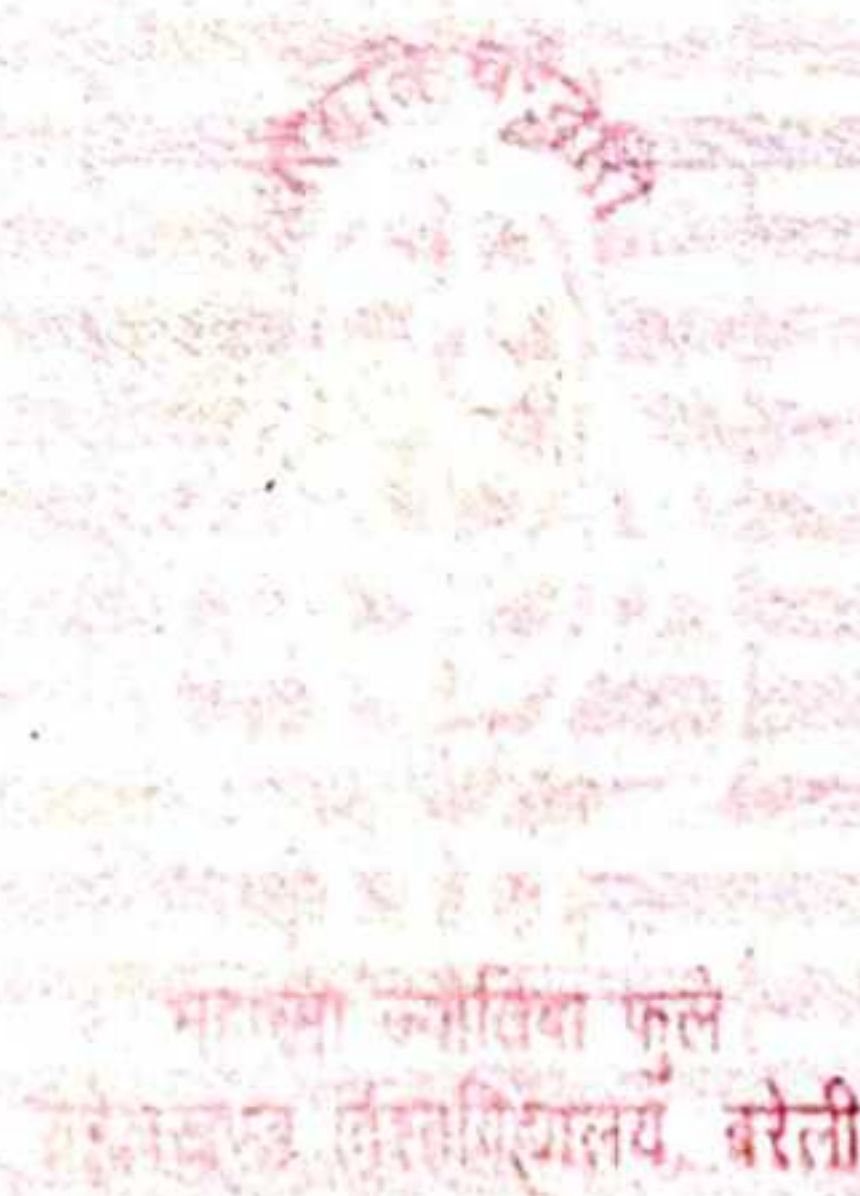 महात्मा ज्योतिबा फुले
रुहेलखण्ड विश्वविद्यालय, बरेली